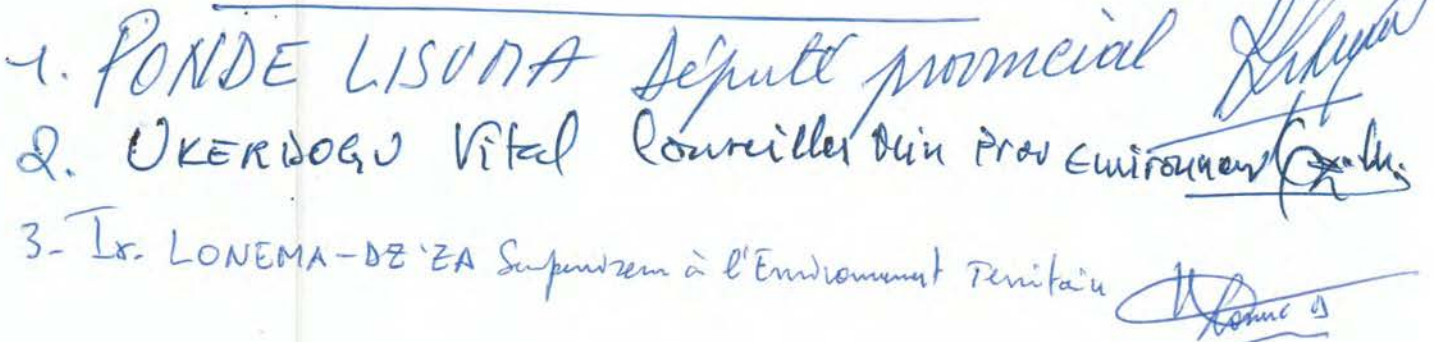 1. PONDE LISUMA Député provincial
2. UKERDOGU Vital Conseiller Min Prov Environnem
3- Ir. LONEMA-DZ'ZA Superviseur à l'Environnement Territoire